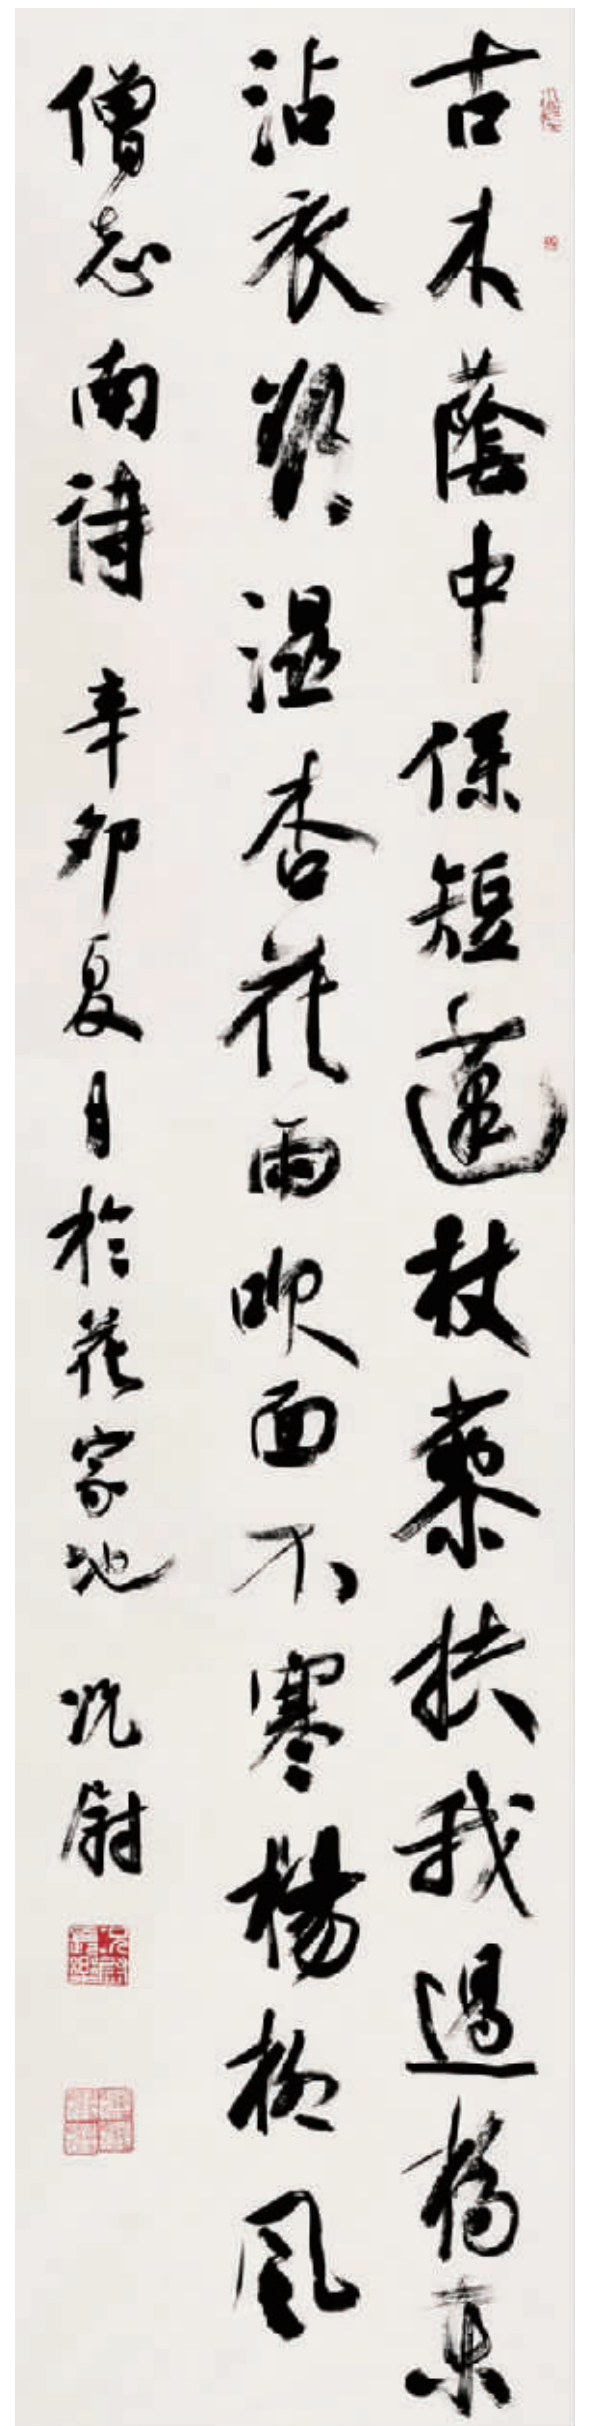 古木蔭中係短蓬杖藜扶我過橋東
沾衣欲湿杏花雨吹面不寒楊柳風
僧志南詩 辛卯夏月於花家地 况尉